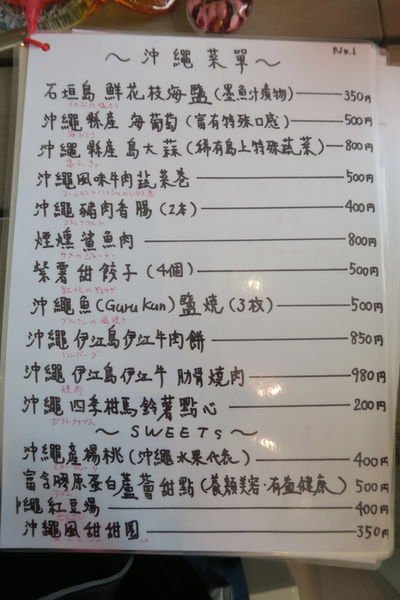 No.1
～沖繩菜單～
石垣島 鮮花枝海鹽(墨魚汁漬物)350円
沖繩縣産 海葡萄(富有特殊口感)500円
沖繩縣産 島大蒜(稀有島上特殊蔬菜)800円
沖繩風味牛肉蔬菜卷 500円
沖繩豬肉香腸(2本)400円
煙燻鯊魚肉 800円
紫薯甜餃子(4個)500円
沖繩魚(Guru kun)鹽燒(3枚)500円
沖繩 伊江島伊江牛肉餅 850円
ハンバーグ
沖繩 伊江島伊江牛 肋骨燒肉 980円
焼肉
沖繩 四季柑馬鈴薯點心 200円
～SWEETS～
沖繩產楊桃(沖繩水果代表)400円
富含膠原蛋白蘆薈甜點(養顏美容·有益健康)500円
沖繩紅豆湯 400円
沖繩風甜甜圈 350円